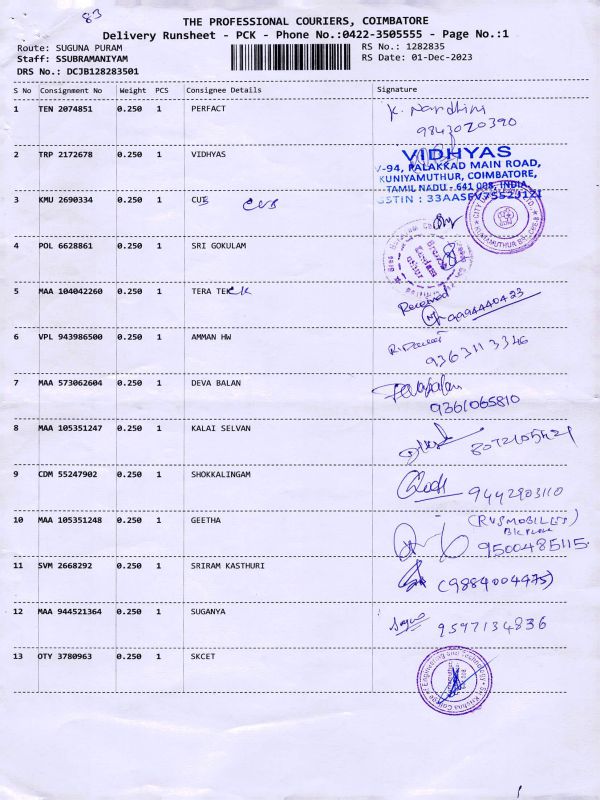 83
THE PROFESSIONAL COURIERS, COIMBATORE
Delivery Runsheet - PCK - Phone No.:0422-3505555 - Page No.:1
Route: SUGUNA PURAM
RS No.: 1282835
Staff: SSUBRAMANIYAM
RS Date: 01-Dec-2023
DRS No.: DCJB128283501
S No Consignment No Weight PCS Consignee Details Signature
1 TEN 2074851 0.250 1 PERFACT K. Nandhini
9843020390
2 TRP 2172678 0.250 1 VIDHYAS VIDHYAS
V-94, PALAKKAD MAIN ROAD,
KUNIYAMUTHUR, COIMBATORE,
TAMIL NADU - 641 008, INDIA
3 KMU 2690334 0.250 1 CUE CUB
4 POL 6628861 0.250 1 SRI GOKULAM
5 MAA 104042260 0.250 1 TERA TEK Received
9994440423
6 VPL 943986500 0.250 1 AMMAN HW
9363113346
7 MAA 573062604 0.250 1 DEVA BALAN Devabalan
9361065810
8 MAA 105351247 0.250 1 KALAI SELVAN
8072105421
9 CDM 55247902 0.250 1 SHOKKALINGAM
9442903110
10 MAA 105351248 0.250 1 GEETHA (RVS MOBILES)
9500485115
11 SVM 2668292 0.250 1 SRIRAM KASTHURI (9884004475)
12 MAA 944521364 0.250 1 SUGANYA
9597134836
13 OTY 3780963 0.250 1 SKCET College of Engineering and Technology